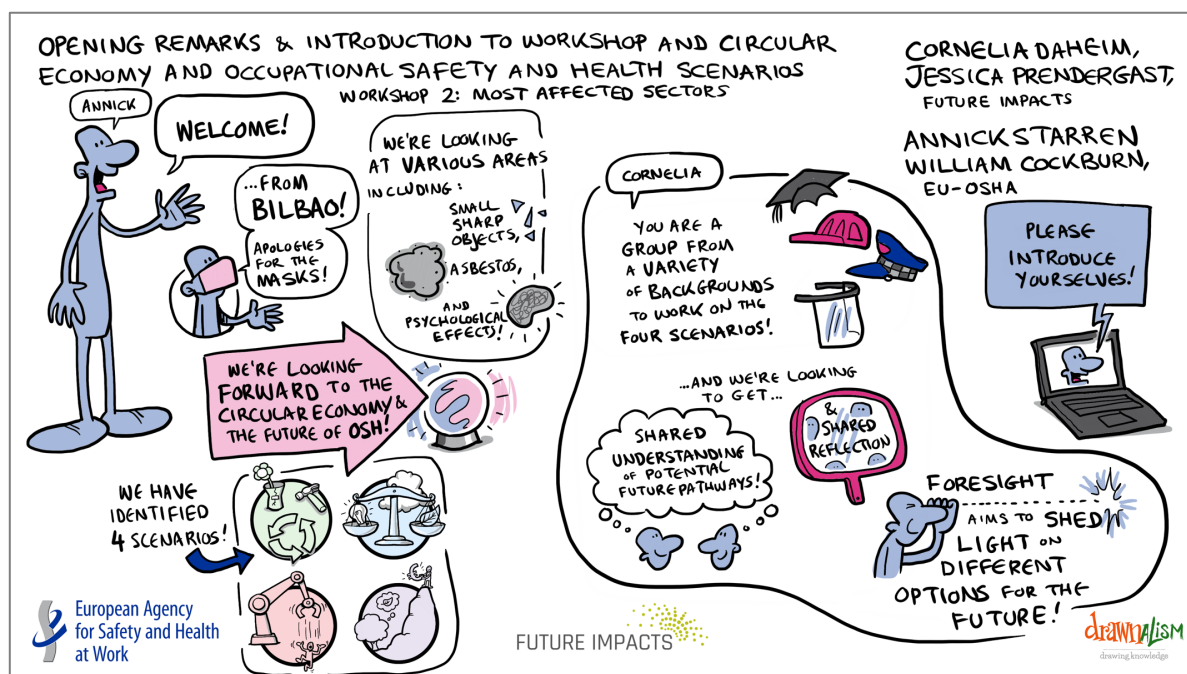 OPENING REMARKS & INTRODUCTION TO WORKSHOP AND CIRCULAR
ECONOMY AND OCCUPATIONAL SAFETY AND HEALTH SCENARIOS
WORKSHOP 2: MOST AFFECTED SECTORS
CORNELIA DAHEIM,
JESSICA PRENDERGAST,
FUTURE IMPACTS
ANNICK STARREN
WILLIAM COCKBURN,
EU-OSHA
ANNICK
WELCOME!
...FROM
BILBAO!
APOLOGIES
FOR THE
MASKS!
WE'RE LOOKING
AT VARIOUS AREAS
INCLUDING:
SMALL
SHARP
OBJECTS,
ASBESTOS,
AND
PSYCHOLOGICAL
EFFECTS!
WE'RE LOOKING
FORWARD TO THE
CIRCULAR ECONOMY &
THE FUTURE OF OSH!
WE HAVE
IDENTIFIED
4 SCENARIOS!
CORNELIA
YOU ARE A
GROUP FROM
A VARIETY
OF BACKGROUNDS
TO WORK ON THE
FOUR SCENARIOS!
...AND WE'RE LOOKING
TO GET...
SHARED
UNDERSTANDING
OF POTENTIAL
FUTURE PATHWAYS!
& SHARED
REFLECTION
PLEASE
INTRODUCE
YOURSELVES!
FORESIGHT
AIMS TO SHED
LIGHT ON
DIFFERENT
OPTIONS FOR THE
FUTURE!
European Agency
for Safety and Health
at Work
FUTURE IMPACTS
drawnalism
drawing knowledge